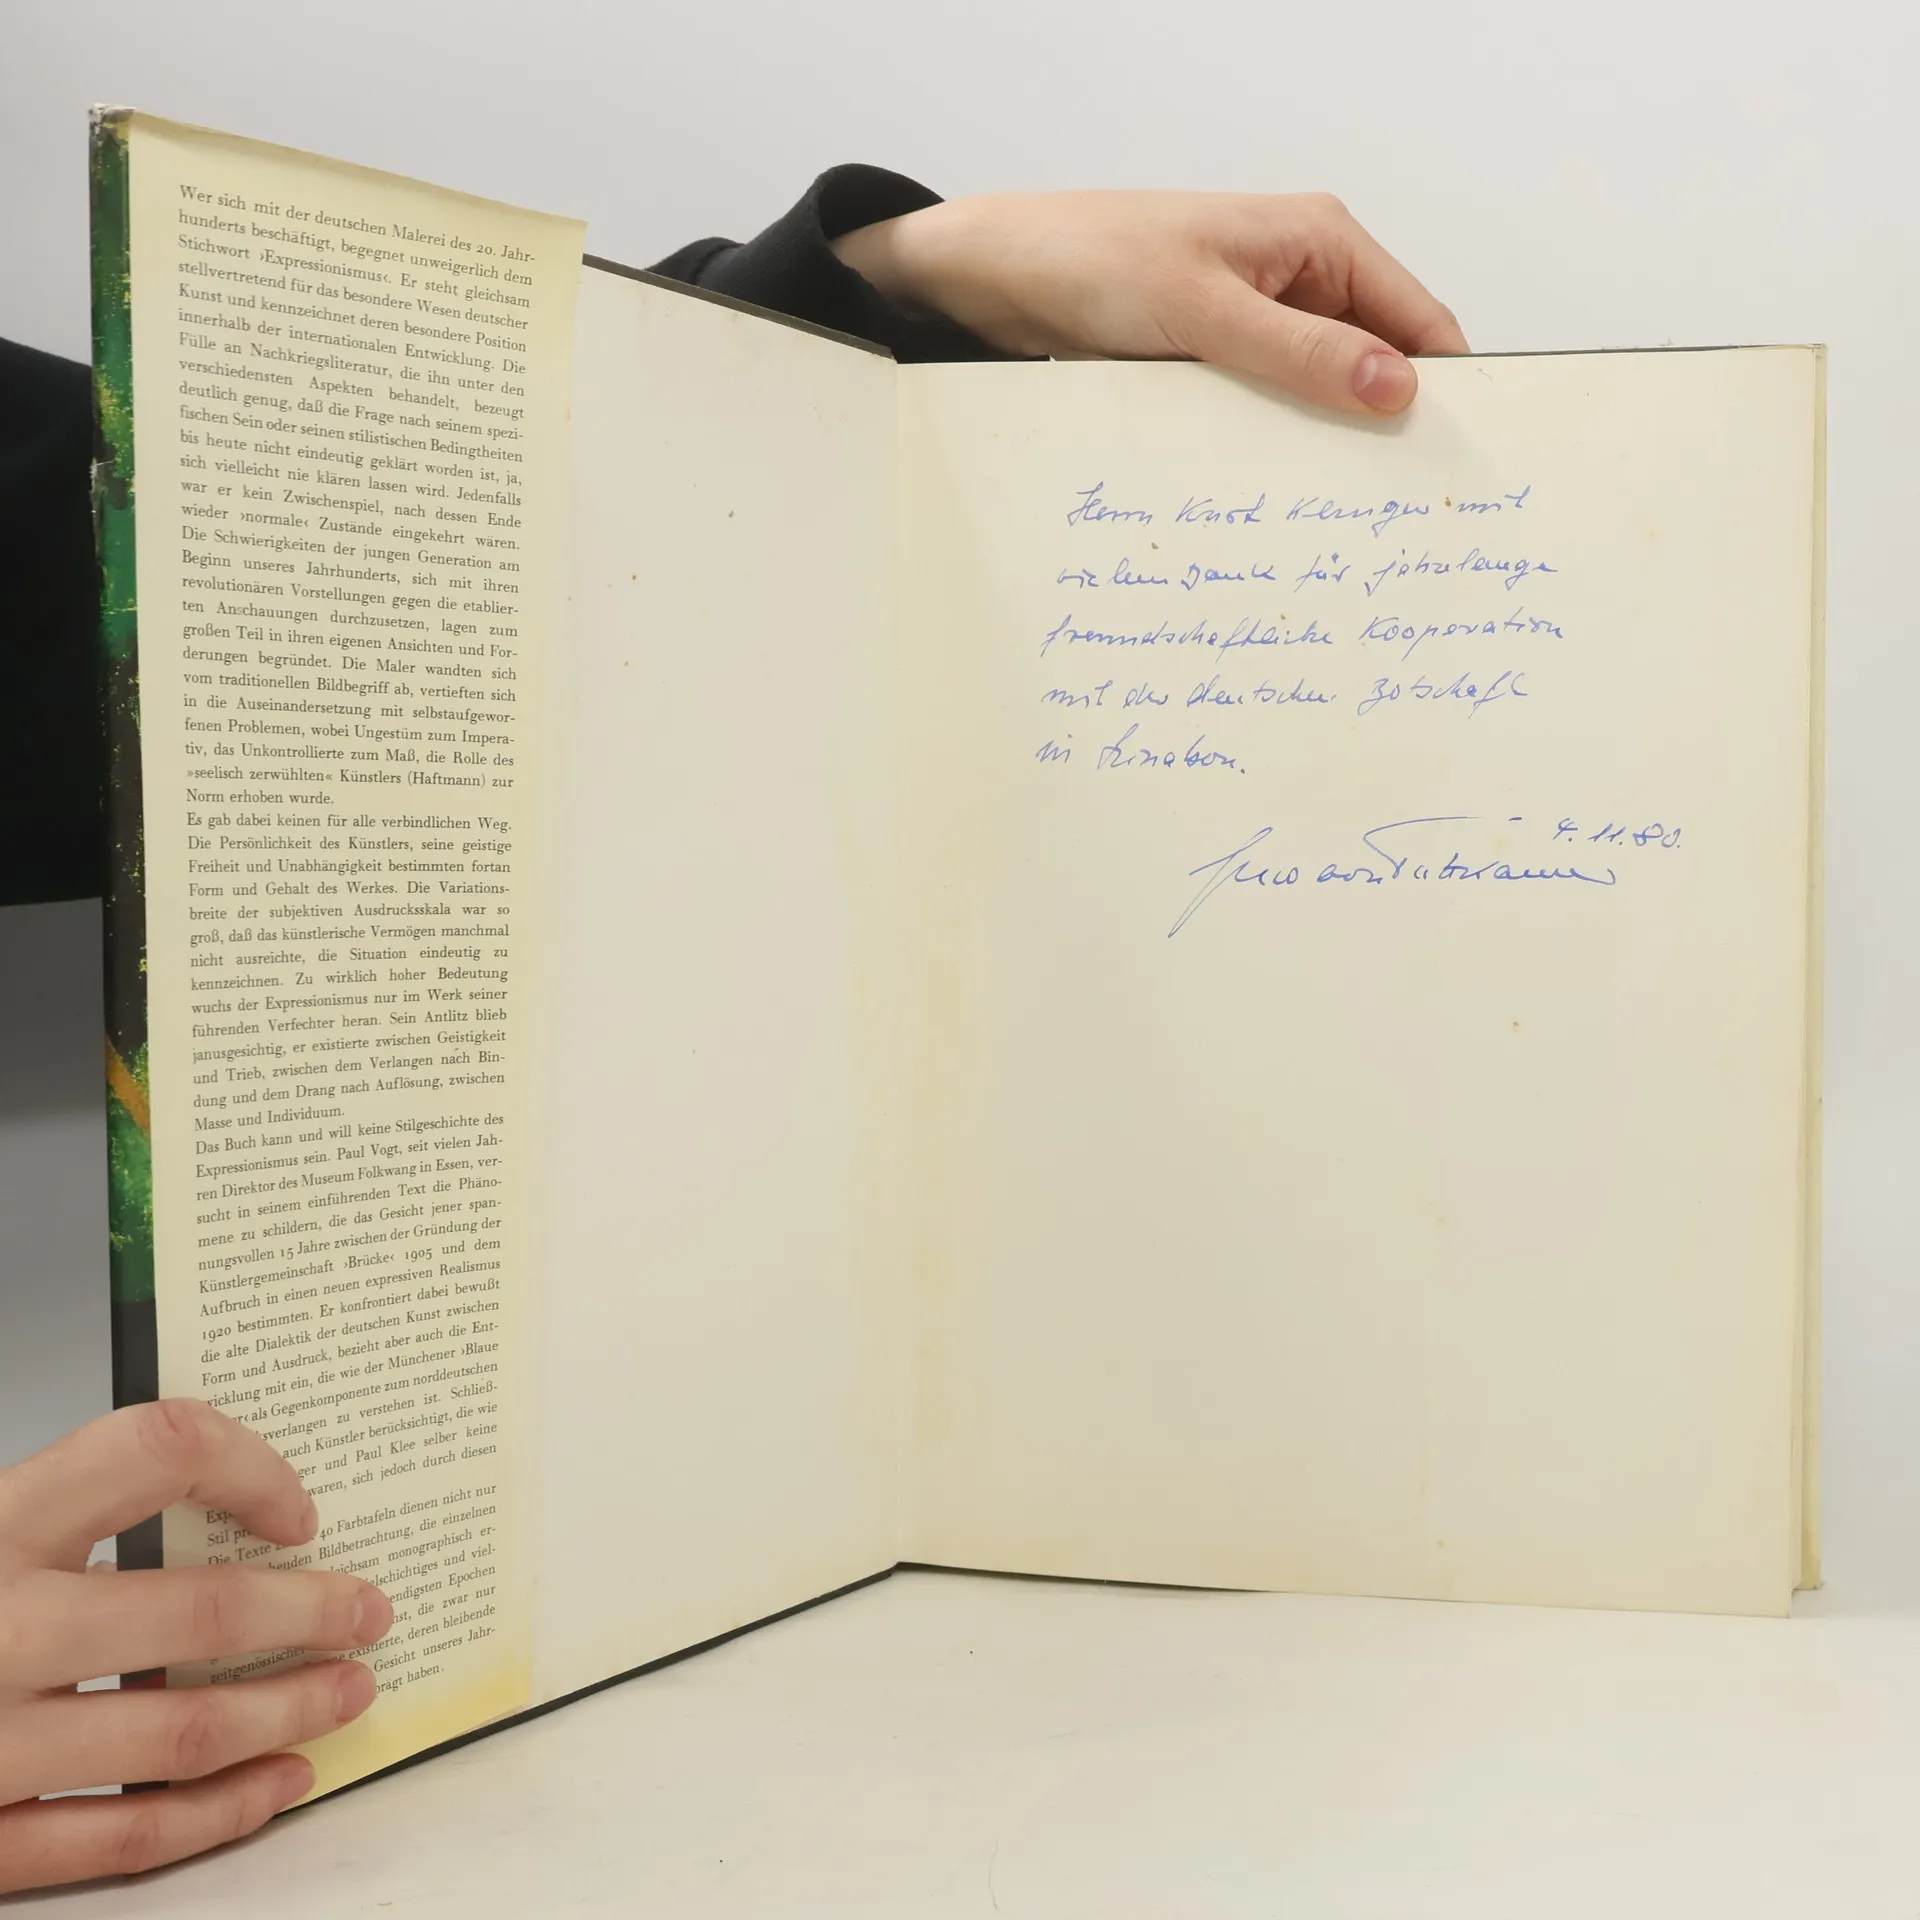 Wer sich mit der deutschen Malerei des 20. Jahr-
hunderts beschäftigt, begegnet unweigerlich dem
Stichwort ›Expressionismus‹. Er steht gleichsam
stellvertretend für das besondere Wesen deutscher
Kunst und kennzeichnet deren besondere Position
innerhalb der internationalen Entwicklung. Die
Fülle an Nachkriegsliteratur, die ihn unter den
verschiedensten Aspekten behandelt, bezeugt
deutlich genug, daß die Frage nach seinem spezi-
fischen Sein oder seinen stilistischen Bedingtheiten
bis heute nicht eindeutig geklärt worden ist, ja,
sich vielleicht nie klären lassen wird. Jedenfalls
war er kein Zwischenspiel, nach dessen Ende
wieder ›normale‹ Zustände eingekehrt wären.
Die Schwierigkeiten der jungen Generation am
Beginn unseres Jahrhunderts, sich mit ihren
revolutionären Vorstellungen gegen die etablier-
ten Anschauungen durchzusetzen, lagen zum
großen Teil in ihren eigenen Ansichten und For-
derungen begründet. Die Maler wandten sich
vom traditionellen Bildbegriff ab, vertieften sich
in die Auseinandersetzung mit selbstaufgewor-
fenen Problemen, wobei Ungestüm zum Impera-
tiv, das Unkontrollierte zum Maß, die Rolle des
»seelisch zerwühlten« Künstlers (Haftmann) zur
Norm erhoben wurde.
Es gab dabei keinen für alle verbindlichen Weg.
Die Persönlichkeit des Künstlers, seine geistige
Freiheit und Unabhängigkeit bestimmten fortan
Form und Gehalt des Werkes. Die Variations-
breite der subjektiven Ausdrucksskala war so
groß, daß das künstlerische Vermögen manchmal
nicht ausreichte, die Situation eindeutig zu
kennzeichnen. Zu wirklich hoher Bedeutung
wuchs der Expressionismus nur im Werk seiner
führenden Verfechter heran. Sein Antlitz blieb
janusgesichtig, er existierte zwischen Geistigkeit
und Trieb, zwischen dem Verlangen nach Bin-
dung und dem Drang nach Auflösung, zwischen
Masse und Individuum.
Das Buch kann und will keine Stilgeschichte des
Expressionismus sein. Paul Vogt, seit vielen Jah-
ren Direktor des Museum Folkwang in Essen, ver-
sucht in seinem einführenden Text die Phäno-
mene zu schildern, die das Gesicht jener span-
nungsvollen 15 Jahre zwischen der Gründung der
Künstlergemeinschaft ›Brücke‹ 1905 und dem
Aufbruch in einen neuen expressiven Realismus
1920 bestimmten. Er konfrontiert dabei bewußt
die alte Dialektik der deutschen Kunst zwischen
Form und Ausdruck, bezieht aber auch die Ent-
wicklung mit ein, die wie der Münchener ›Blaue
als Gegenkomponente zum norddeutschen
verlangen zu verstehen ist. Schließ-
auch Künstler berücksichtigt, die wie
und Paul Klee selber keine
waren, sich jedoch durch diesen
Stil
Die Texte 40 Farbtafeln dienen nicht nur
Bildbetrachtung, die einzelnen
monographisch er-
und viel-
Epochen
die zwar nur
deren bleibende
zeitgenössischer Gesicht unseres Jahr-
haben.
Herrn Kurt mit
vielem Dank für jahrelange
freundschaftliche Kooperation
mit der deutschen Botschaft
in
4. 11. 80.